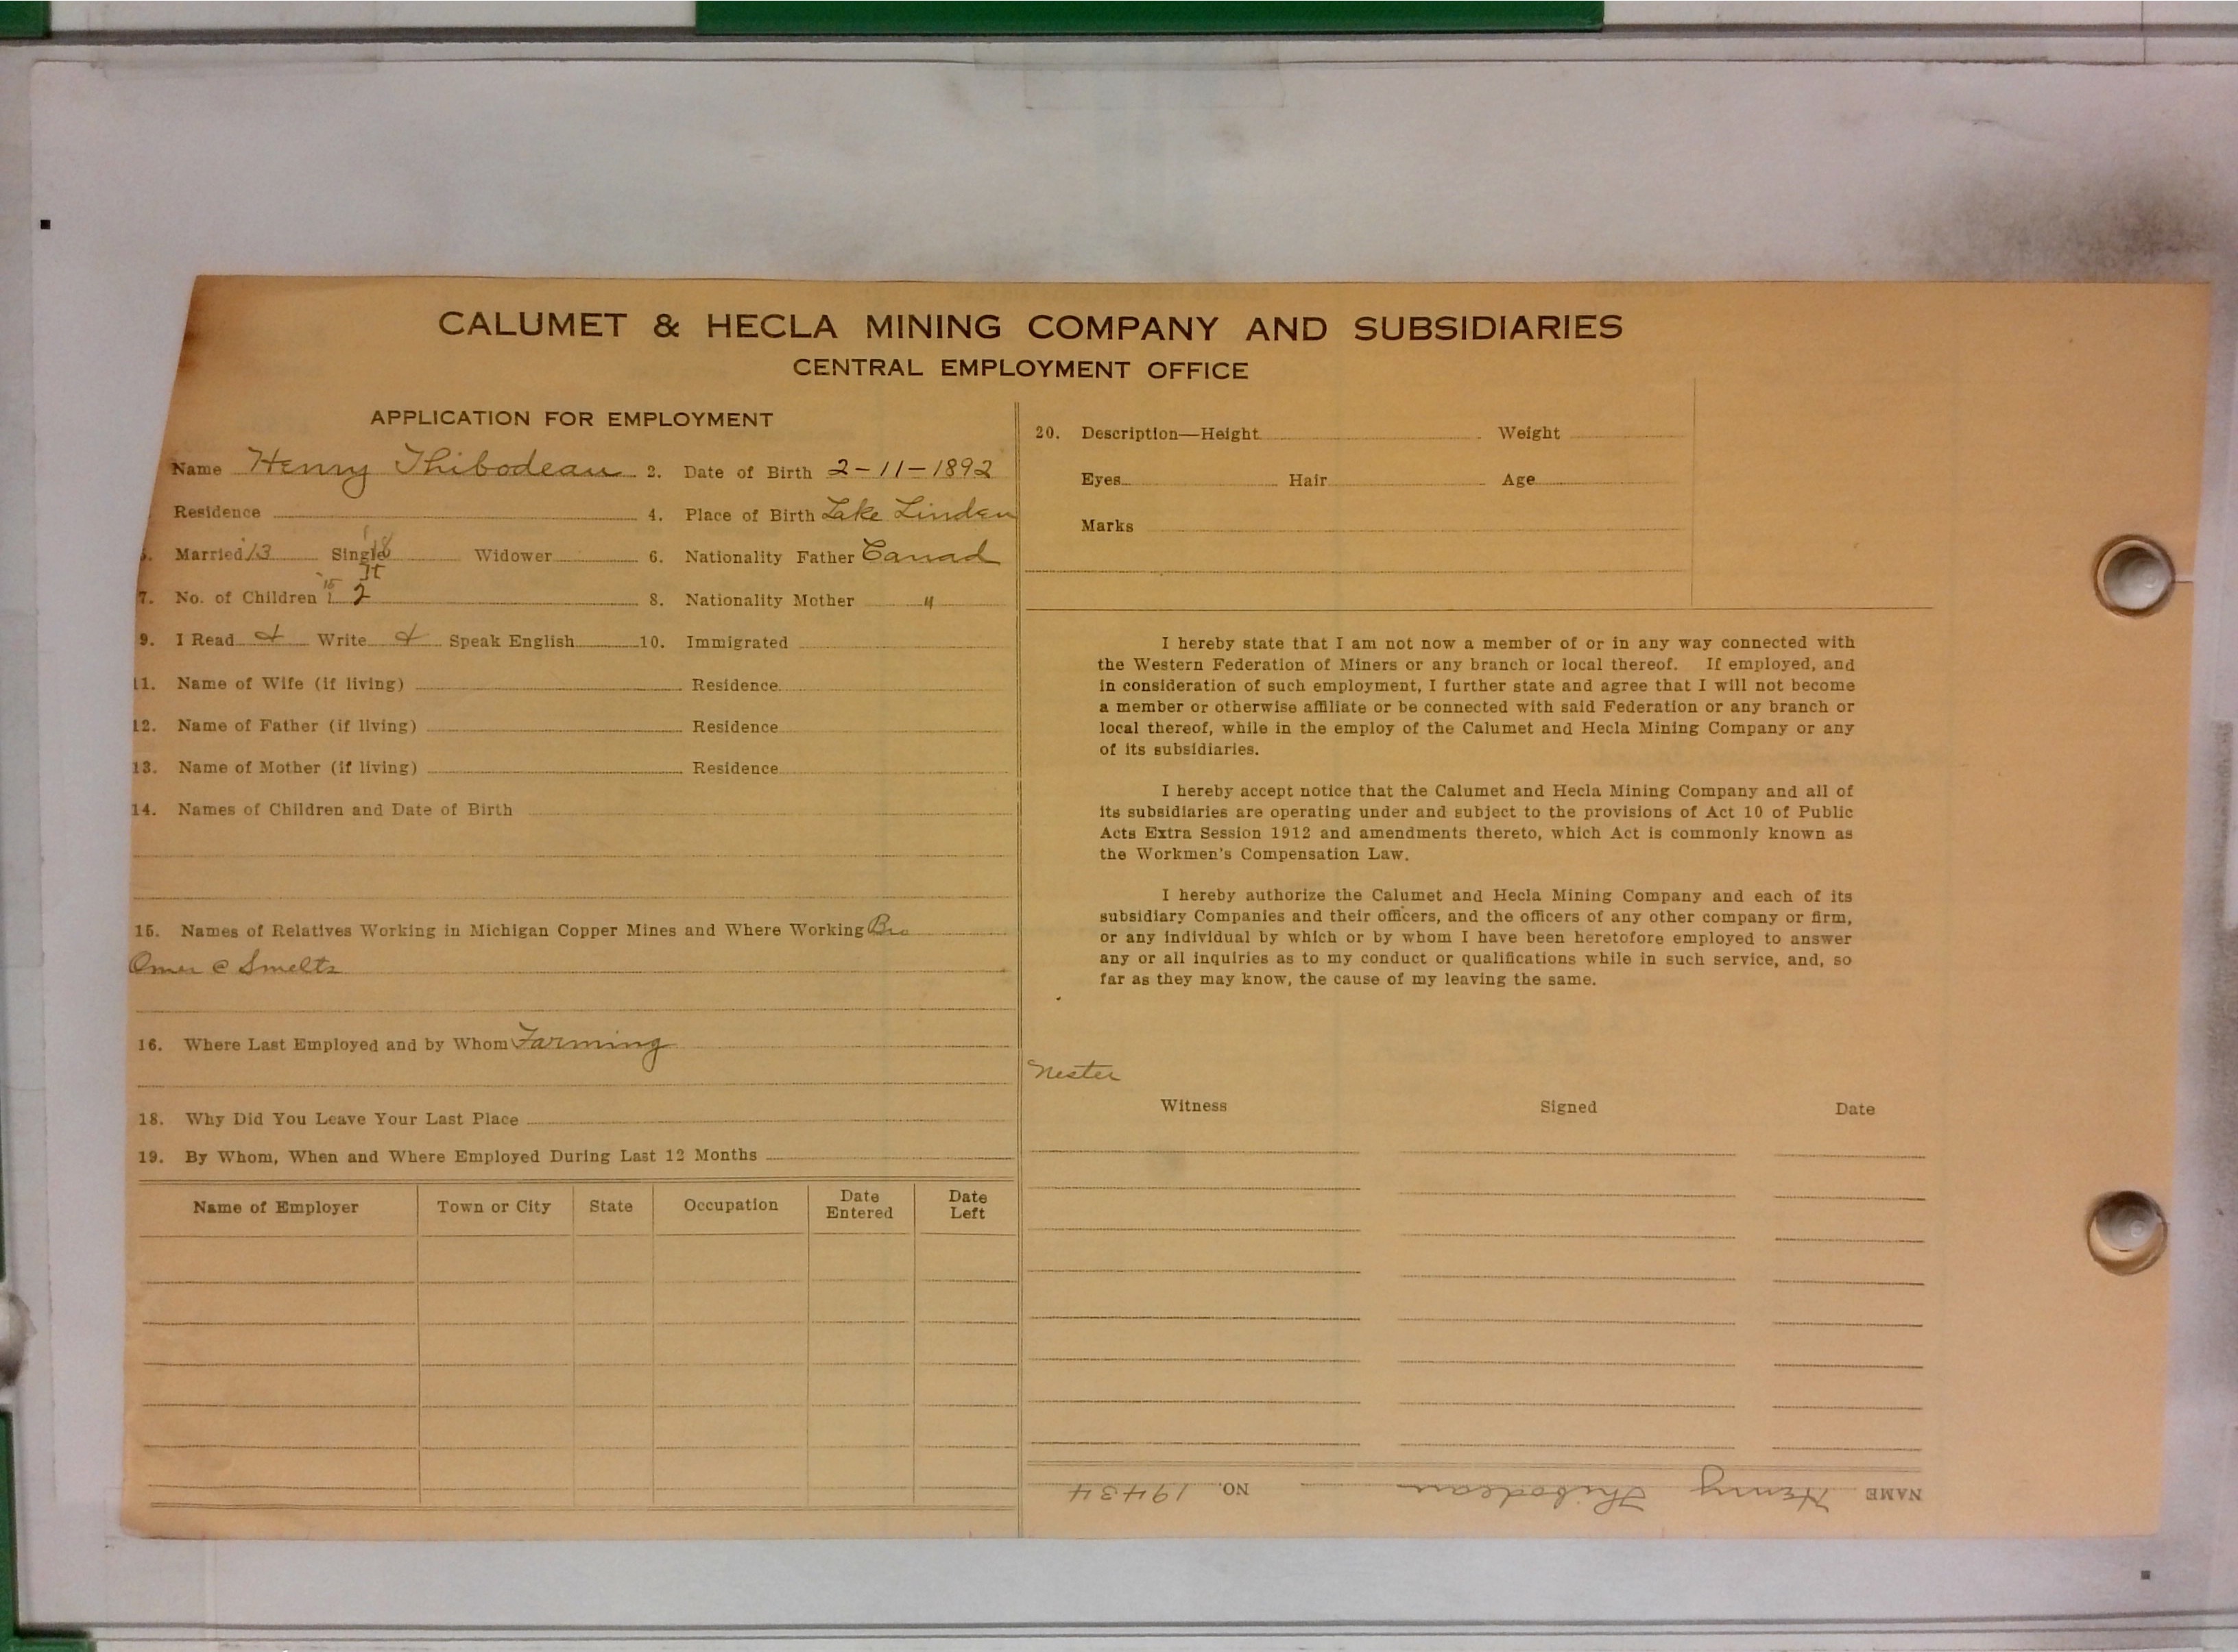 CALUMET & HECLA MINING COMPANY AND SUBSIDIARIES
CENTRAL EMPLOYMENT OFFICE
APPLICATION FOR EMPLOYMENT
Name Henry Thibodeau 2. Date of Birth 2-11-1892
Residence 4. Place of Birth Lake Linden
5. Married 13 Single 18 Widower 6. Nationality Father Canad
7. No. of Children 2 8. Nationality Mother "
9. I Read Write Speak English 10. Immigrated
11. Name of Wife (if living) Residence
12. Name of Father (if living) Residence
13. Name of Mother (if living) Residence
14. Names of Children and Date of Birth
15. Names of Relatives Working in Michigan Copper Mines and Where Working Bro
Omer @ Smeltr
16. Where Last Employed and by Whom Farming
18. Why Did You Leave Your Last Place
19. By Whom, When and Where Employed During Last 12 Months
Name of Employer Town or City State Occupation Date Entered Date Left
20. Description—Height Weight
Eyes Hair Age
Marks
I hereby state that I am not now a member of or in any way connected with
the Western Federation of Miners or any branch or local thereof. If employed, and
in consideration of such employment, I further state and agree that I will not become
a member or otherwise affiliate or be connected with said Federation or any branch or
local thereof, while in the employ of the Calumet and Hecla Mining Company or any
of its subsidiaries.
I hereby accept notice that the Calumet and Hecla Mining Company and all of
its subsidiaries are operating under and subject to the provisions of Act 10 of Public
Acts Extra Session 1912 and amendments thereto, which Act is commonly known as
the Workmen's Compensation Law.
I hereby authorize the Calumet and Hecla Mining Company and each of its
subsidiary Companies and their officers, and the officers of any other company or firm,
or any individual by which or by whom I have been heretofore employed to answer
any or all inquiries as to my conduct or qualifications while in such service, and, so
far as they may know, the cause of my leaving the same.
Nester
Witness Signed Date
NAME Henry Thibodeau NO. 19434